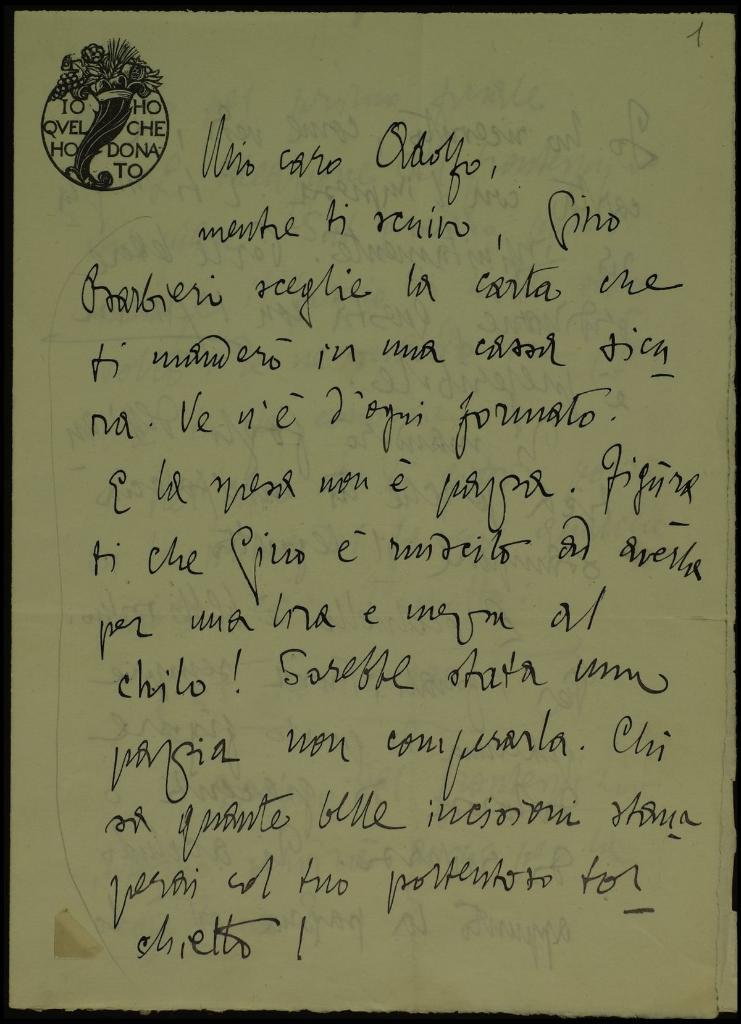 1
IO HO
QVEL CHE
HO DONA
TO
Mio caro Adolfo,
mentre ti scrivo, Gino
Barbieri sceglie la carta che
ti manderò in una cassa sicu
ra. Ve n'è d'ogni formato.
E la spesa non è pazza. Figura
ti che Gino è riuscito ad averla
per una lira e mezza al
chilo! Sarebbe stata una
pazzia non comperarla. Chi
sa quante belle incisioni stam
perai col tuo portentoso tor
chietto!